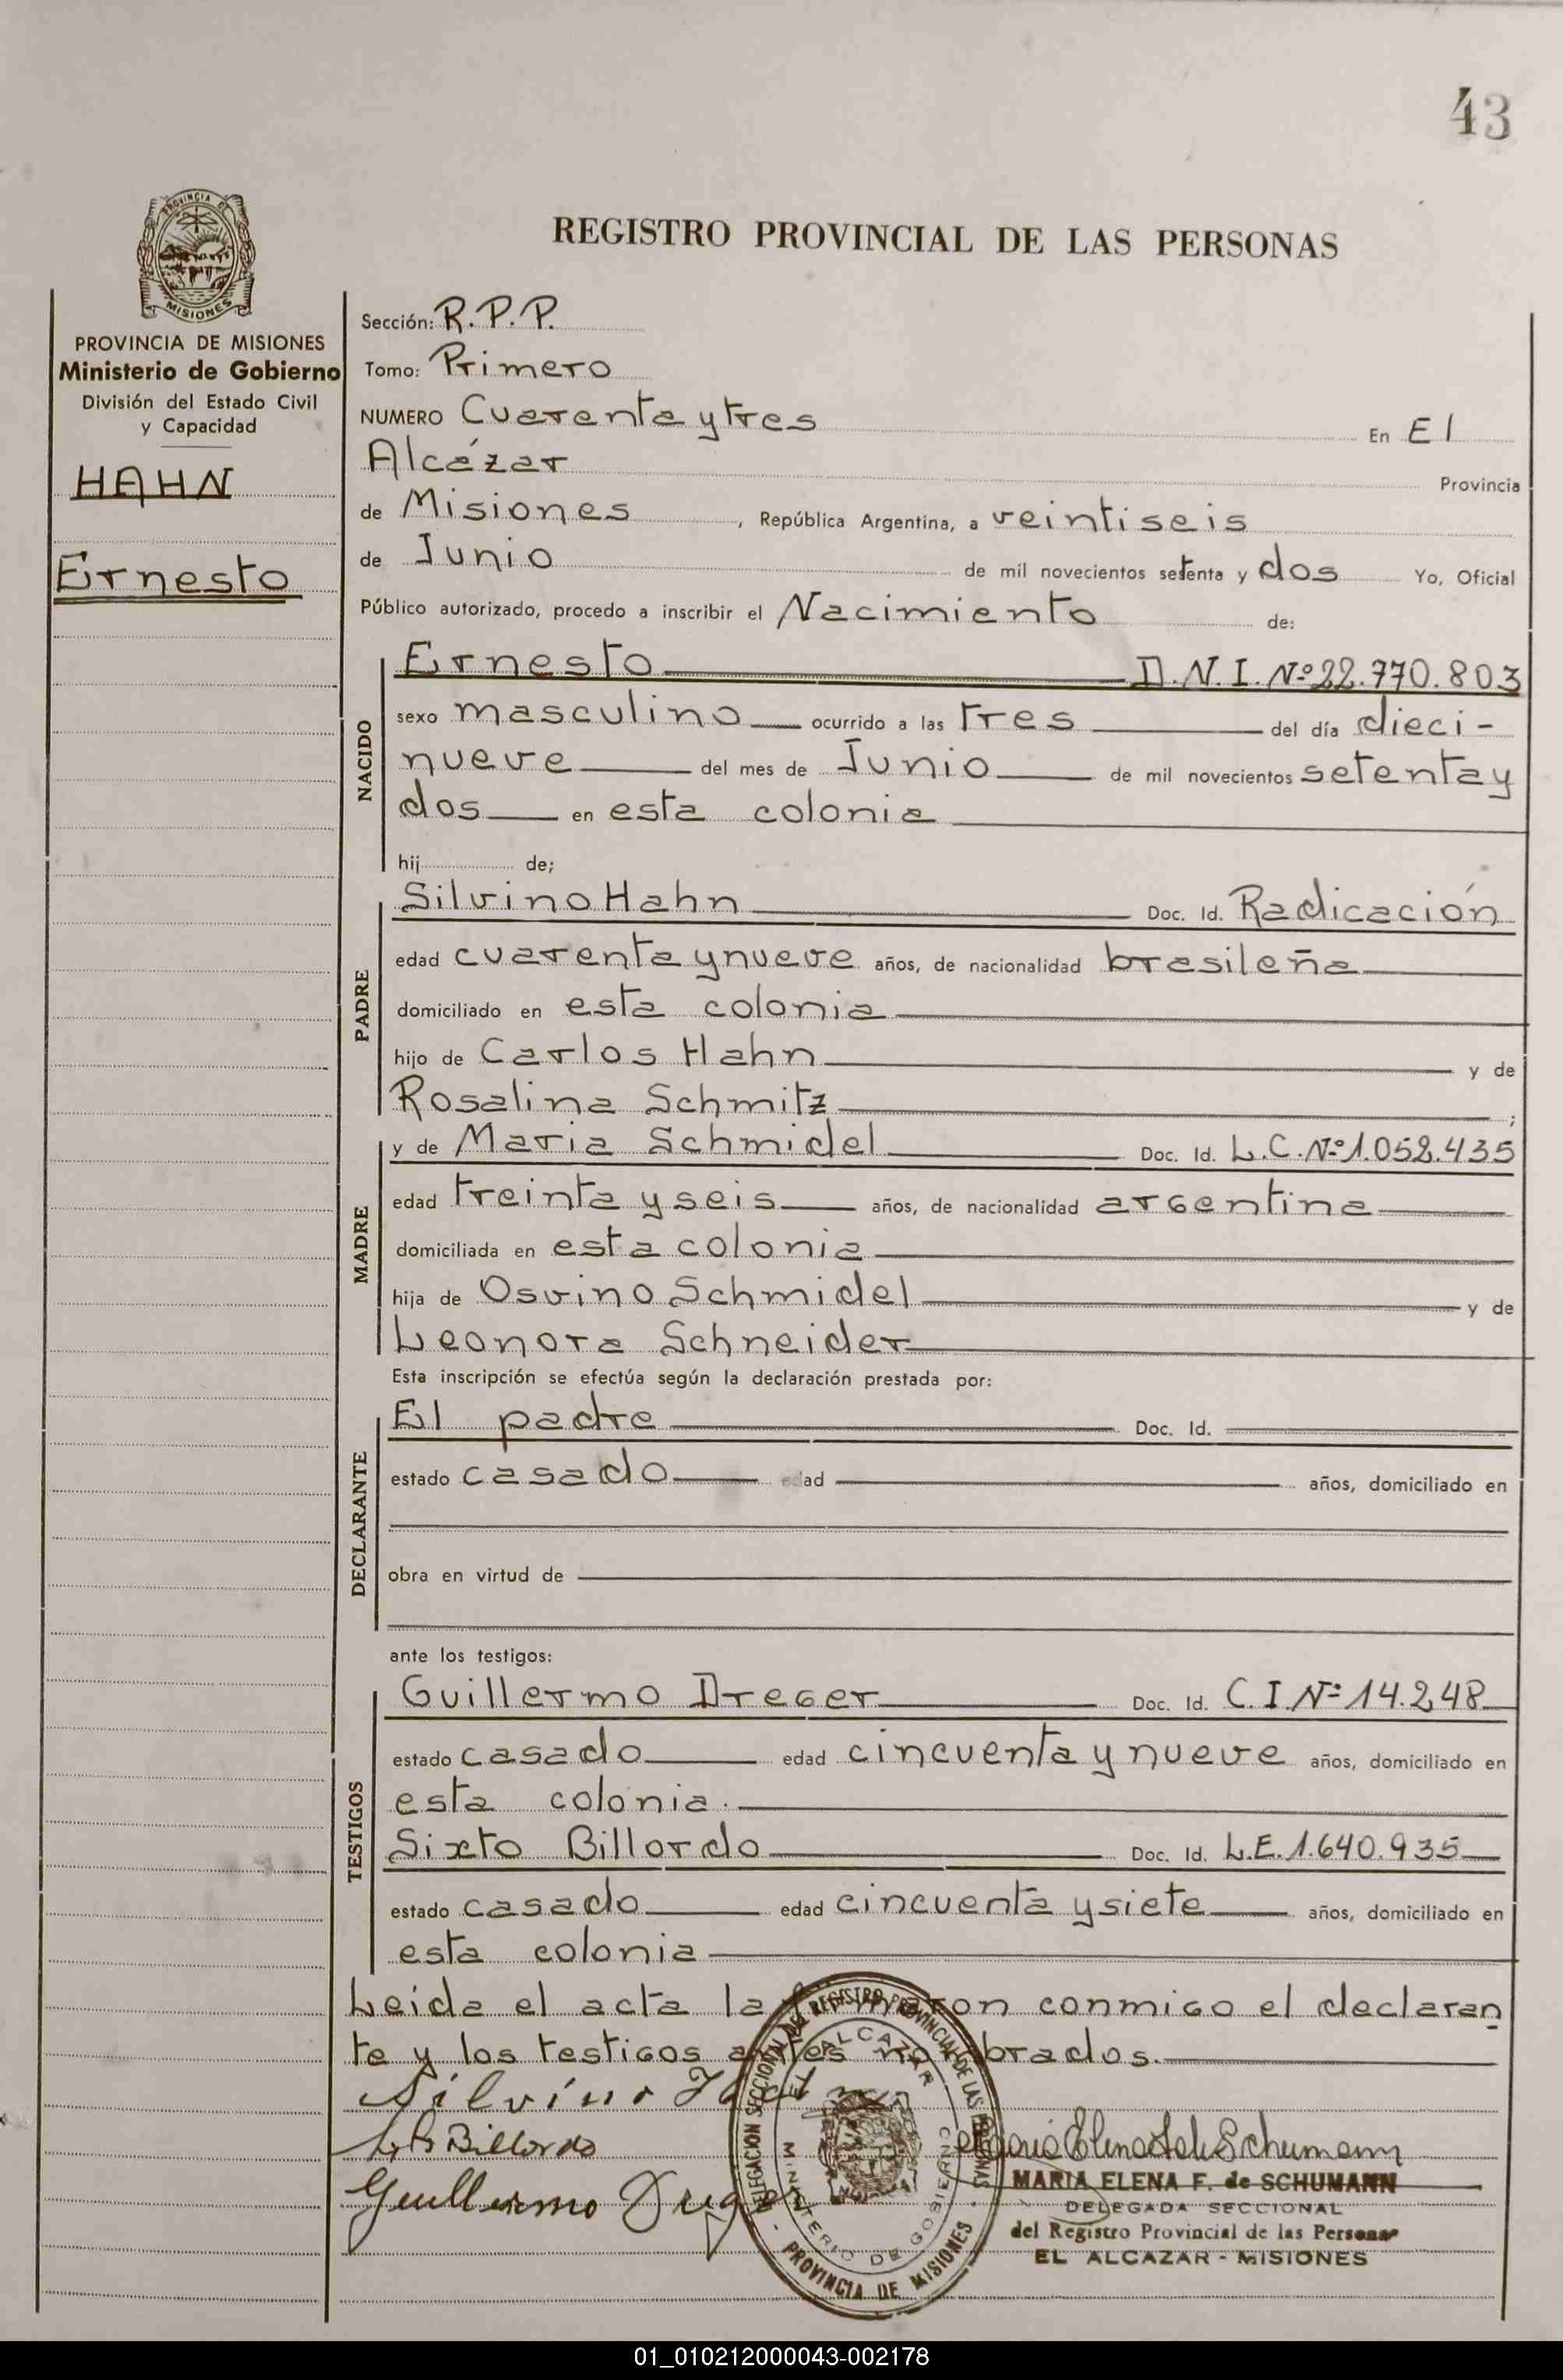 43
PROVINCIA DE
MISIONES
REGISTRO PROVINCIAL DE LAS PERSONAS
PROVINCIA DE MISIONES
Ministerio de Gobierno
División del Estado Civil
y Capacidad
HAHN
Ernesto
Sección: R.P.P.
Tomo: Primero
NUMERO Cuarenta y tres En El
Alcázar Provincia
de Misiones, República Argentina, a veintiseis
de Junio de mil novecientos setenta y dos Yo, Oficial
Público autorizado, procedo a inscribir el Nacimiento de:
NACIDO
Ernesto D.N.I. Nº 22.770.803
sexo masculino ocurrido a las tres del día dieci-
nueve del mes de Junio de mil novecientos setenta y
dos en esta colonia
hij de;
PADRE
Silvino Hahn Doc. Id. Radicación
edad cuarenta y nueve años, de nacionalidad brasileña
domiciliado en esta colonia
hijo de Carlos Hahn y de
Rosalina Schmitz ;
MADRE
y de Maria Schmidel Doc. Id. L.C. Nº 1.058.435
edad treinta y seis años, de nacionalidad argentina
domiciliada en esta colonia
hija de Osvino Schmidel y de
Leonora Schneider
Esta inscripción se efectúa según la declaración prestada por:
DECLARANTE
El padre Doc. Id.
estado casado edad años, domiciliado en
obra en virtud de
ante los testigos:
TESTIGOS
Guillermo Dreger Doc. Id. C.I. Nº 14.248
estado casado edad cincuenta y nueve años, domiciliado en
esta colonia.
Sixto Billordo Doc. Id. L.E. 1.640.935
estado casado edad cincuenta y siete años, domiciliado en
esta colonia
Leida el acta la firmaron conmigo el declaran
te y los testigos antes nombrados.
Silvino
Billordo
Guillermo
DELEGACION SECCIONAL DE REGISTRO PROVINCIAL DE LAS PERSONAS
EL ALCAZAR
MINISTERIO DE GOBIERNO
- PROVINCIA DE MISIONES -
Maria Elena F. de Schumann
MARIA ELENA F. de SCHUMANN
DELEGADA SECCIONAL
del Registro Provincial de las Personas
EL ALCAZAR - MISIONES
01_010212000043-002178